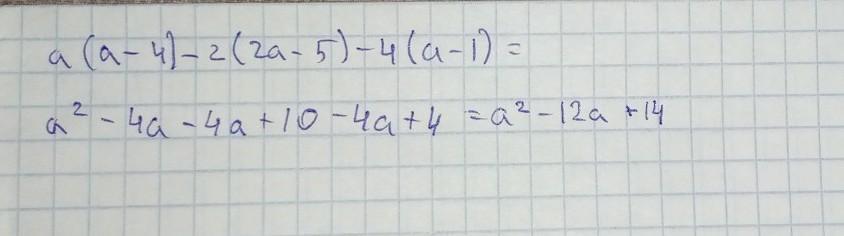 a(a-4)-2(2a-5)-4(a-1)=
a²-4a-4a+10-4a+4=a²-12a+14